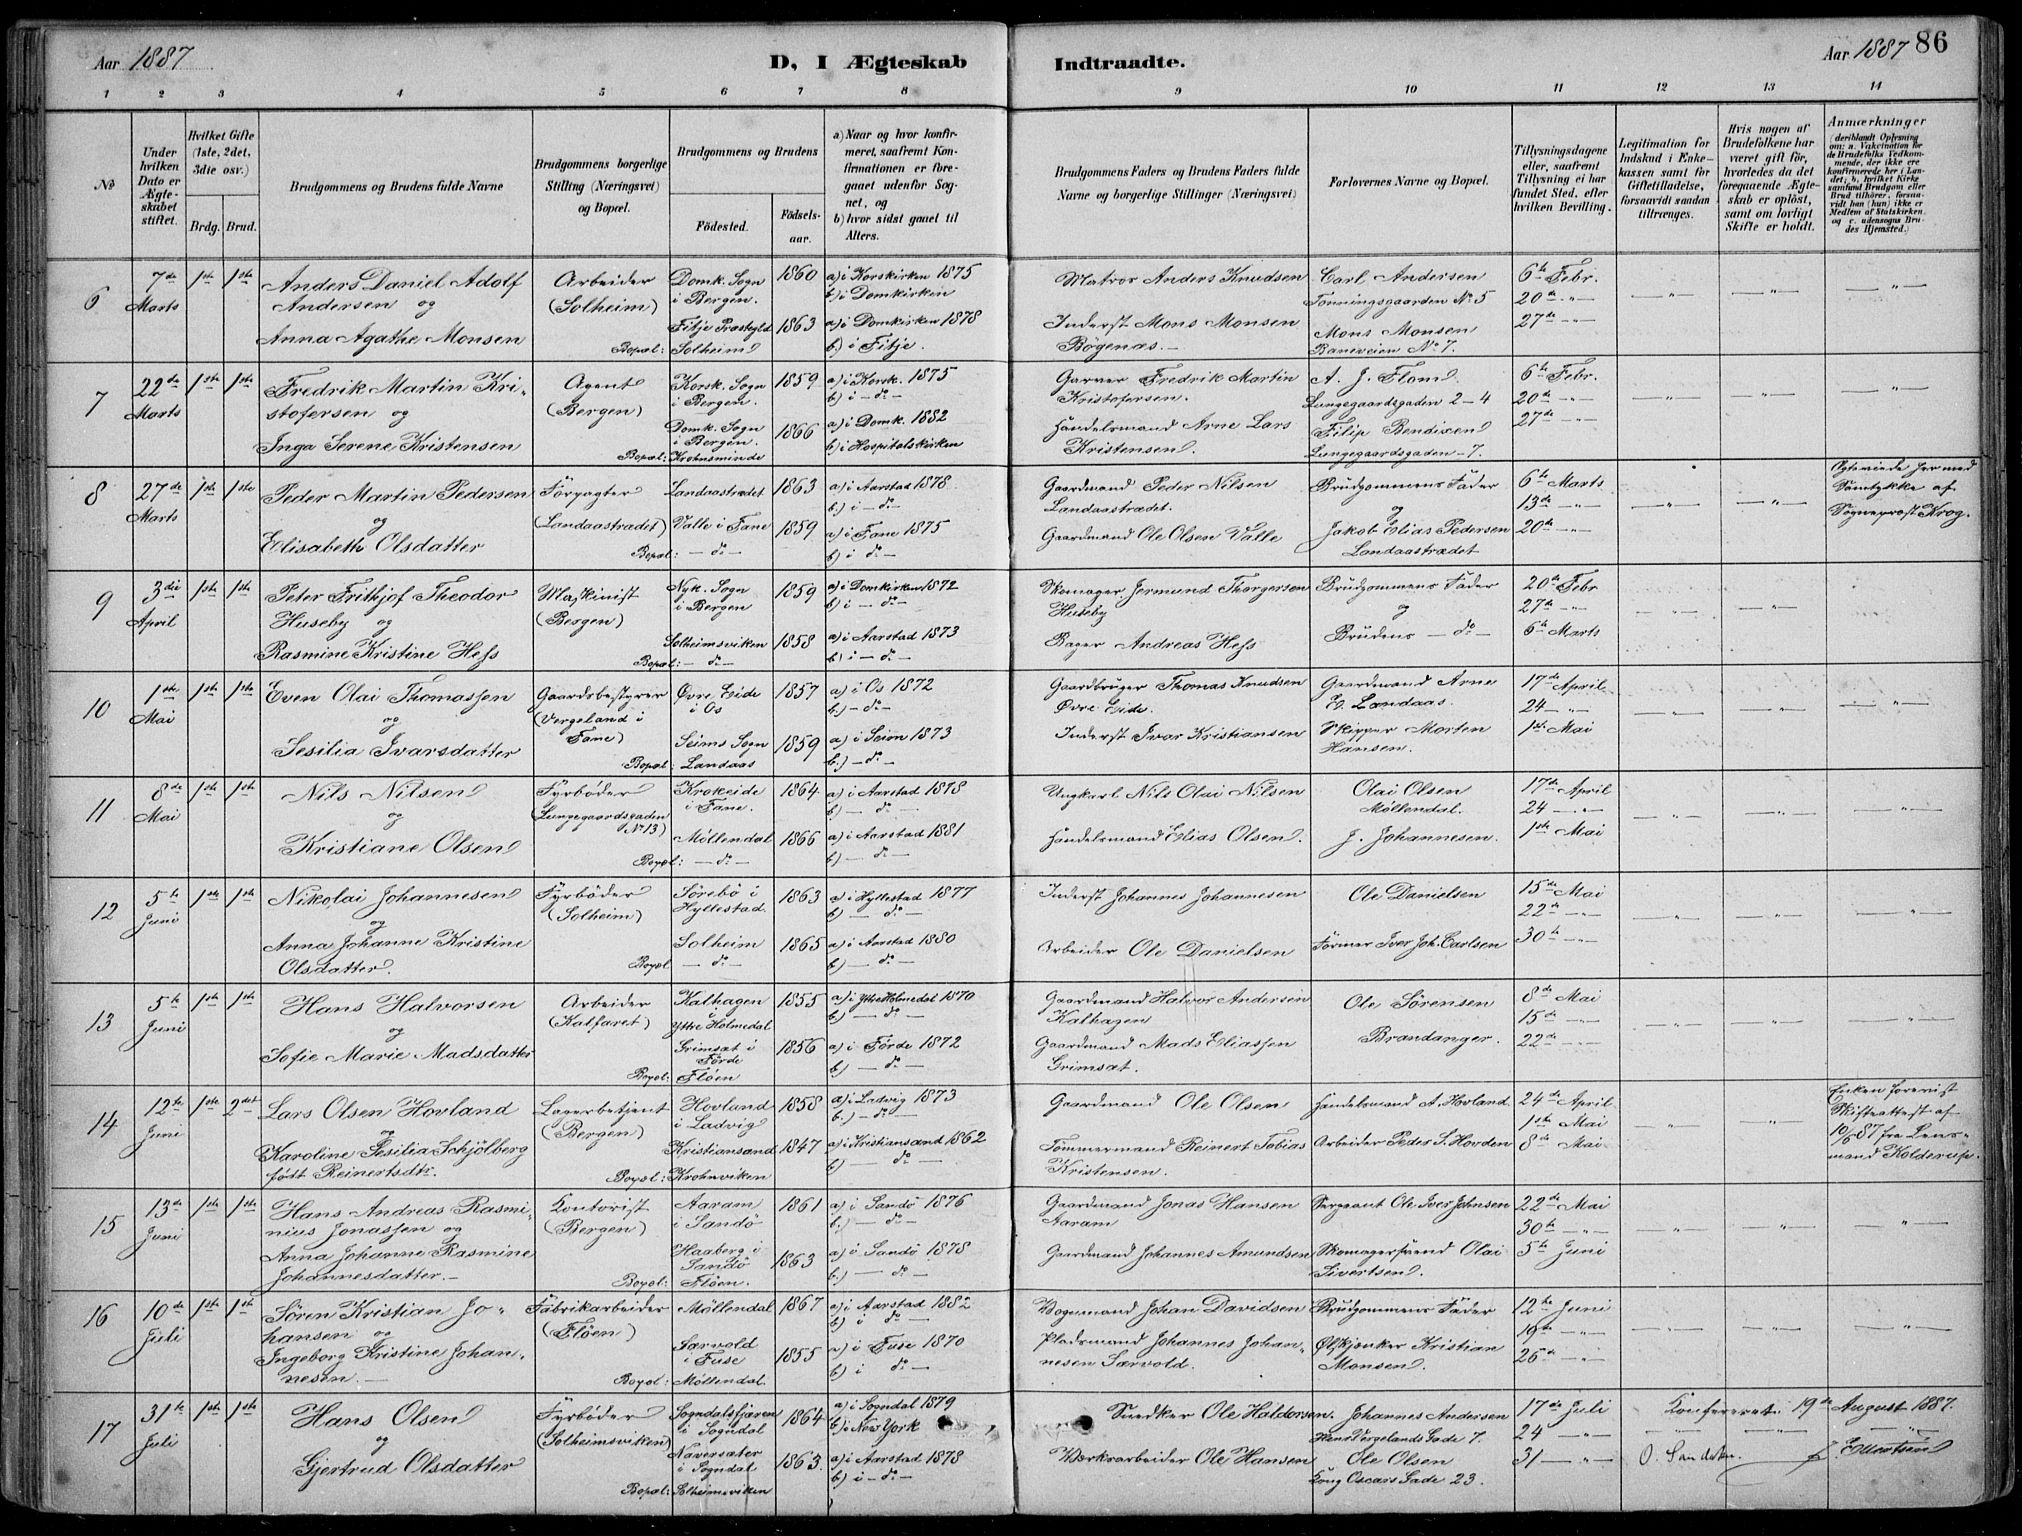 Aar 1887
D, I Ægteskab Indtraadte.
Aar 1887 86
1 2 3 4 5 6 7 8 9 10 11 12 13 14
No
Under hvilken Dato er Ægteskabet stiftet.
Hvilket Gifte (1ste, 2det, 3die osv.)
Brdg. Brud.
Brudgommens og Brudens fulde Navne
Brudgommens borgerlige Stilling (Næringsvei) og Bopæl.
Brudgommens og Brudens
Fødested.
Fødselsaar.
a) Naar og hvor konfirmeret, saafremt Konfirmationen er foregaaet udenfor Sognet, og
b) hvor sidst gaaet til Alters.
Brudgommens Faders og Brudens Faders fulde Navne og borgerlige Stillinger (Næringsvei)
Forlovernes Navne og Bopæl.
Tillysningsdagene eller, saafremt Tillysning ei har fundet Sted, efter hvilken Bevilling.
Legitimation for Indskud i Enkekassen samt for Giftetilladelse, forsaavidt saadan tiltrænges.
Hvis nogen af Brudefolkene har været gift før, hvorledes da det foregaaende Ægteskab er opløst, samt om lovligt Skifte er holdt.
Anmærkninger (deriblandt Oplysning om: a. Vakcination for de Brudefolks Vedkommende, der ikke ere konfirmerede her i Landet; b. hvilket Kirkesamfund Brudgom eller Brud tilhører, forsaavidt han (hun) ikke er Medlem af Statskirken, og c. udensogns Brudes Hjemsted.)
6 7de Marts 1ste 1ste Anders Daniel Adolf Andersen og Anna Agathe Monsen
Arbeider (Solheim)
Domk. Sogn i Bergen. 1860 a) i Korskirken 1875 b) i Domkirken
Fitje Præstegld 1863 a) i Domkirken 1878 b) i Fitje.
Bopæl: Solheim
Matros Anders Knudsen
Inderst Mons Monsen Bøgenæs.
Carl Andersen Tonningsgaarden No 5
Mons Monsen Baneveien No 7.
6te Febr. 20de 27de
7 22de Marts 1ste 1ste Fredrik Martin Kristofersen og Inga Serene Kristensen
Agent (Bergen)
Korsk. Sogn i Bergen. 1859 a) i Korsk. 1875 b) i - do -
Domk. Sogn i Bergen. 1866 a) i Domk. 1882 b) i Hospitalskirken
Bopæl: Krohnsminde
Garver Fredrik Martin Kristofersen.
Handelsmand Arne Lars Kristensen.
A. J. Flom Lungegaardsgaden 2-4
Filip Bendixen Lungegaardsgaden - 7.
6te Febr. 20de 27de
8 27de Marts 1ste 1ste Peder Martin Pedersen og Elisabeth Olsdatter
Forpagter (Landaastrædet)
Landaastrædet 1863 a) i Aarstad 1878 b) i - do -
Valle i Fane 1859 a) i Fane 1875 b) i do -
Bopæl: - do -
Gaardmand Peder Nilsen Landaastrædet.
Gaardmand Ole Olsen Valle
Brudgommens Fader og Jakob Elias Pedersen Landaastrædet
6te Marts 13de 20de
Egteviede her med Samtykke af Sogneprost Krog.
9 3die April 1ste 1ste Peter Frithjof Theodor Huseby og Rasmine Kristine Hess
Maskinist (Bergen)
Nyk. Sogn i Bergen 1859 a) i Domkirken 1872 b) i - do -
Solheimsviken 1858 a) i Aarstad 1873 b) i - do -
Bopæl: - do -
Skomager Jermund Thorgersen Huseby
Bager Andreas Hess
Brudgommens Fader og Brudens - do -
20de Febr 27de 6te Marts
10 1ste Mai 1ste 1ste Even Olai Thomassen og Sesilia Ivarsdatter
Gaardsbestyrer (Vergeland i Fane)
Øvre Eide i Os 1857 a) i Os 1872 b) - do -
Seims Sogn 1859 a) i Seim 1873 b) - do -
Bopæl: Landaas
Gaardbruger Thomas Knudsen Øvre Eide.
Inderst Ivar Kristiansen
Gaardmand Arne E. Landaas.
Skipper Morten Hansen.
17de April 24 1ste Mai
11 8de Mai 1ste 1ste Nils Nilsen og Kristiane Olsen
Fyrbøder (Lungegaardsgaden No 13)
Krokeide i Fane. 1864 a) i Aarstad 1878 b) - do -
Møllendal 1866 a) i Aarstad 1881 b) - do -
Bopæl: - do -
Ungkarl Nils Olai Nilsen
Handelsmand Elias Olsen.
Olai Olsen Møllendal.
J. Johannesen.
17de April 24 1ste Mai
12 5te Juni 1ste 1ste Nikolai Johannesen og Anna Johanne Kristine Olsdatter.
Fyrbøder (Solheim)
Sørebø i Hyllestad. 1863 a) i Hyllestad 1877 b) - do -
Solheim 1865 a) i Aarstad 1880 b) - do -
Bopæl - do -
Inderst Johannes Johannesen
Arbeider Ole Danielsen
Ole Danielsen
Former Iver Joh. Carlsen
15de Mai 22de 30te
13 5te Juni 1ste 1ste Hans Halvorsen og Sofie Marie Madsdatter
Arbeider (Kalfaret)
Kalhagen i Ytre Holmedal 1855 a) i Ytre Holmedal 1870 b) - do -
Grimsæt i Førde 1856 a) i Førde 1872 b) - do -
Bopæl: Fløen
Gaardmand Halvor Andersen Kalhagen
Gaardmand Mads Eliassen Grimsæt.
Ole Sørensen
Brandanger.
8de Mai 15de 22de
14 12te Juni 1ste 2det Lars Olsen Hovland og Karoline Sesilia Schjølberg født Reinertsdtr.
Lagerbetjent (Bergen)
Hovland i Ladvig 1858 a) i Ladvig 1873 b) - do -
Kristiansand 1847 a) i Kristiansand 1862 b) - do -
Bopæl: Krohnviken
Gaardmand Ole Olsen
Tømmermand Reinert Tobias Kristensen.
Handelsmand A. Hovland
Arbeider Peder S. Hovden
24de April 1ste Mai 8de Mai
Enken forevist Skifteattest af 10/6 87 fra Lensmand Kolderup.
15 13de Juni 1ste 1ste Hans Andreas Rasminius Jonassen og Anna Johanne Rasmine Johannesdatter.
Kontorist (Bergen)
Aaram i Sandø 1861 a) i Sandø 1876 b) - do -
Haaberg i Sandø 1863 a) i Sandø 1878 b) - do -
Bopæl: Fløen.
Gaardmand Jonas Hansen Aaram
Gaardmand Johannes Amundsen
Sergeant Ole Iver Johnsen
Skomagersvend Olai Sivertsen.
22de Mai 30te 5te Juni
16 10de Juli 1ste 1ste Søren Kristian Johansen og Ingeborg Kristine Johannesen.
Fabrikarbeider (Fløen)
Møllendal 1867 a) i Aarstad 1882 b) i do -
Sarvold i Fuse 1855 a) i Fuse 1870 b) i do -
Bopæl: Møllendal.
Vognmand Johan Davidsen
Pladsmand Johannes Johannesen Sarvold.
Brudgommens Fader
Ølskjenker Kristian Monsen.
12te Juni 19de 26de
17 31te Juli 1ste 1ste Hans Olsen og Gjertrud Olsdatter
Fyrbøder (Solheimsviken)
Sogndalsfjæren i Sogndal 1864 a) i Sogndal 1879 b) i New York
Naversæter i Sogndal 1863. a) i Aarstad 1878 b) i - do -
Bopæl: Solheimsviken
Snedker Ole Haldorsen.
Værksarbeider Ole Hansen
Johannes Andersen Henr. Vergelands Gade 7.
Ole Olsen Kong Oscars Gade 23.
17de Juli 24 31
Konfereret 19de August 1887.